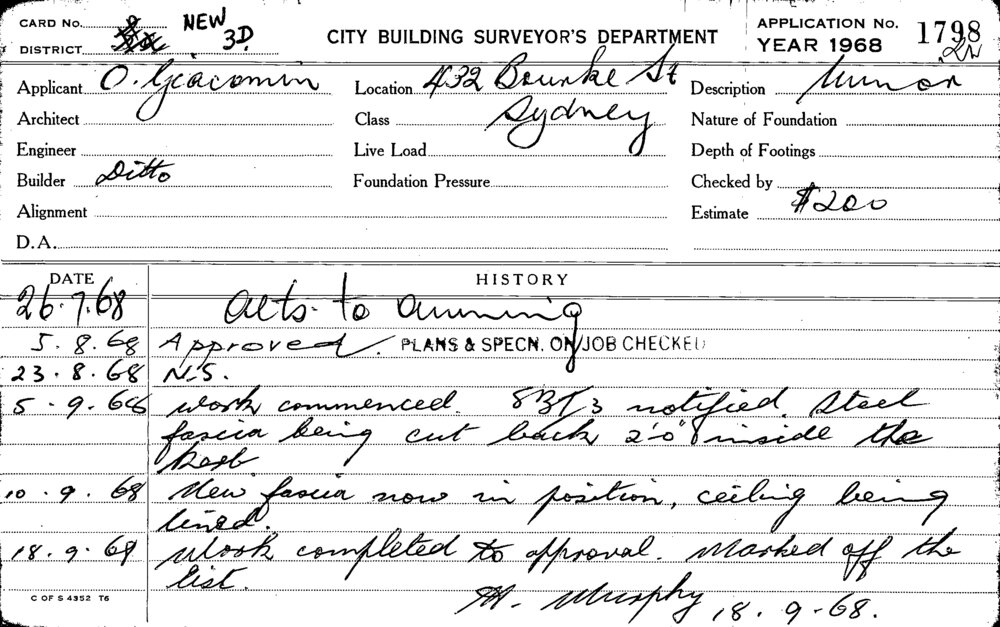 CARD No. NEW
DISTRICT 3D.
CITY BUILDING SURVEYOR'S DEPARTMENT
APPLICATION No. 1798
YEAR 1968
Applicant O. Giacomin Location 432 Bourke St Description Minor
Architect Class Sydney Nature of Foundation
Engineer Live Load Depth of Footings
Builder Ditto Foundation Pressure Checked by
Alignment Estimate $200
D.A.
DATE HISTORY
26.7.68 Alts. to Awning
5.8.68 Approved. PLANS & SPECN. ON JOB CHECKED
23.8.68 N.S.
5.9.68 Work commenced. notified. Steel
fascia being cut back 2'0" inside the
kerb.
10.9.68 New fascia now in position, ceiling being
lined.
18.9.68 Work completed to approval. Marked off the
list.
C OF S 4352 T6
M. Murphy 18.9.68.